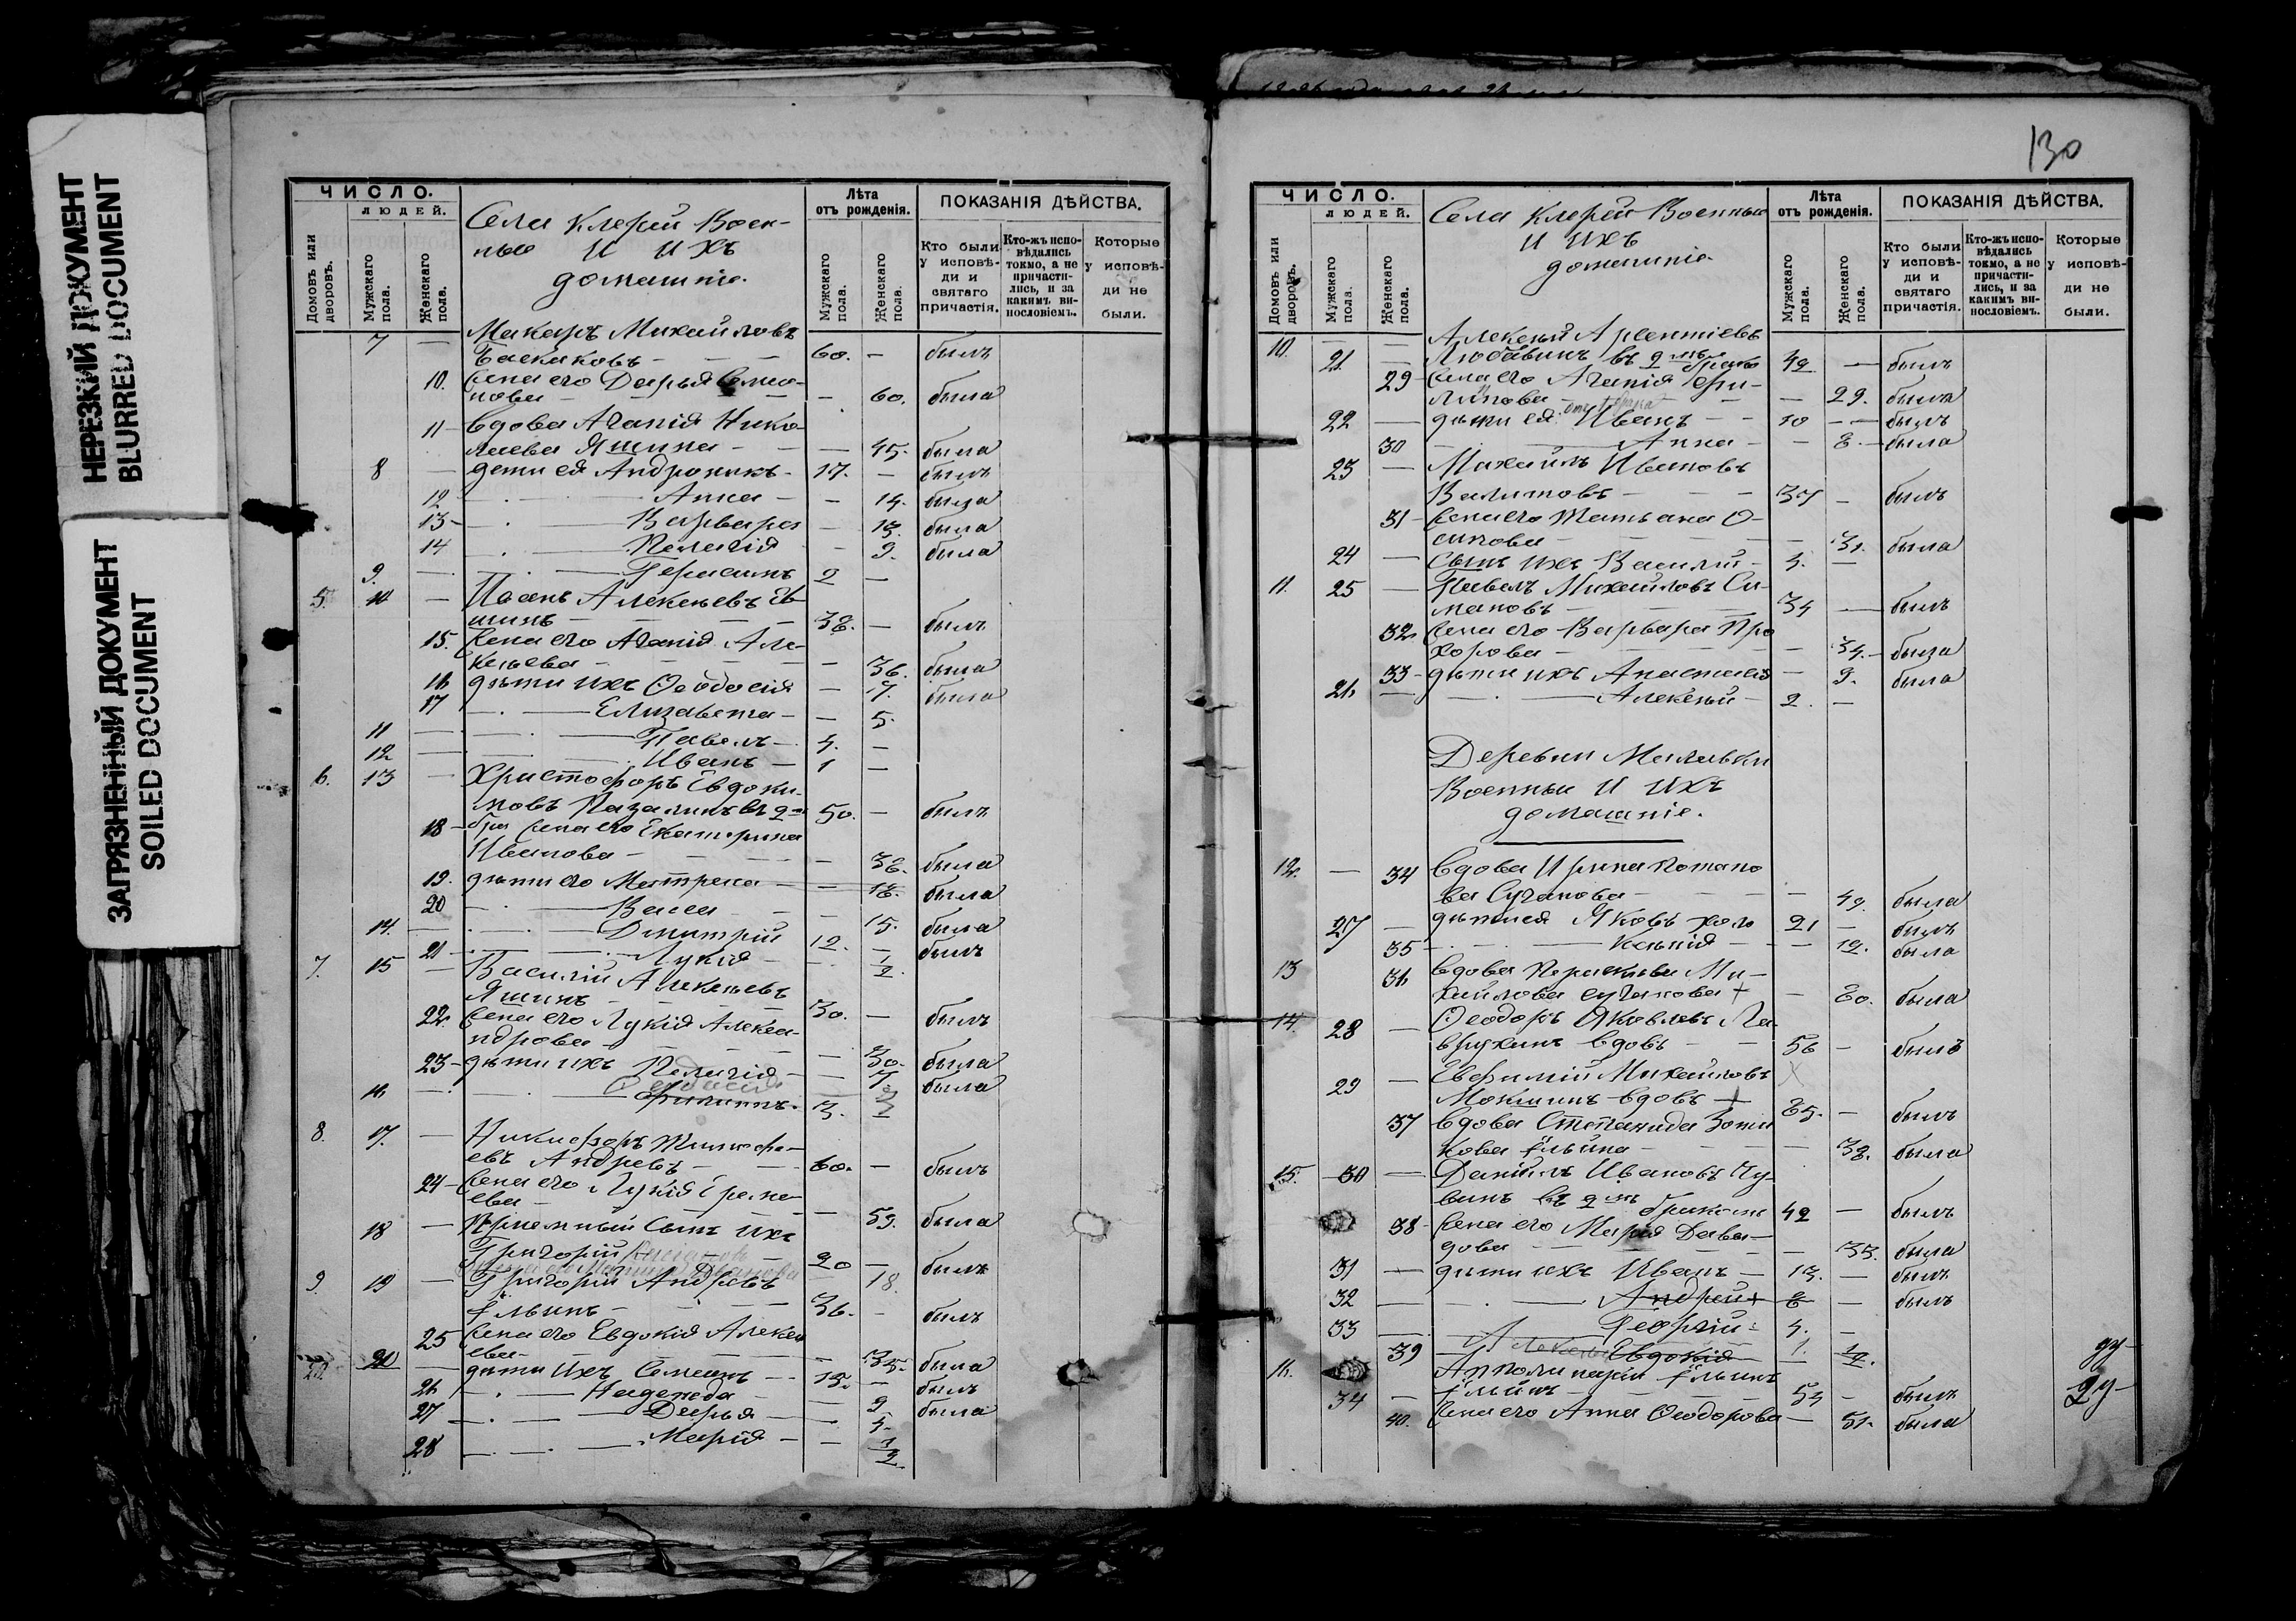 НЕРЕЗКИЙ ДОКУМЕНТ
BLURRED DOCUMENT
ЗАГРЯЗНЕННЫЙ ДОКУМЕНТ
SOILED DOCUMENT
ЧИСЛО.
ЛЮДЕЙ.
Домовъ или дворовъ.
Мужскаго пола.
Женскаго пола.
Села Клерей Воен-
ные И ИХЪ
домашніе.
Лѣта
отъ рожденія.
Мужскаго пола.
Женскаго пола.
ПОКАЗАНІЯ ДѢЙСТВА.
Кто были у исповѣ-ди и святаго причастія.
Кто-жъ испо-вѣдались токмо, а не причасти-лись, и за какимъ ви-нословіемъ.
Которые у исповѣ-ди не были.
7 — Макаръ Михайловъ
Баскаковъ — 60. — былъ
10. Жена его Дарья Семио-
нова — — 60. была
11 Вдова Агапія Нико-
лаева Яшина — — 45. была
8 — дети ея Андроникъ 17. — былъ
12 Анна — — 14. была
13 Варвара — 13. была
14 Пелагія — 9. была
9. Герасимъ 2 —
5. 10 — Иосифъ Алексѣевъ Ев
шинъ 38. — былъ
15. Жена его Агапія Але-
ксѣева — 36. была
16 дѣти ихъ Ѳеодосія — 7. была
17 Елизавета — — 5.
11 Павелъ — 4. —
12 Иванъ — 1 —
6. 13 — Христофоръ Евдоки-
мовъ Казалинъ въ 2мъ 50. — былъ
18 бра Жена его Екатерина
Иванова — — 38. была
19. дѣти его Матрена — — 18. была
20 Васса — 15. была
14. Димитрій 12. — былъ
21 Лукія — 1/2.
7. 15 — Василій Алексѣевъ
Яшинъ — 30. — былъ
22. Жена его Лукія Алекса-
ндрова — — 30. была
23 дѣти ихъ Пелагія — — 7 была
16 Филиппъ. 3.
8. 17. — Никифоръ Тимофе-
евъ Андреевъ — 60. — былъ
24 Жена его Лукія Ереме-
ева — — 59. была
18 — Пріемный сынъ ихъ
Григорій 20 — былъ
18.
9. 19 — Григорій Андреевъ
Ильинъ — 36. — былъ
25 Жена его Евдокія Алексѣ
ева — — 35. была
20 — дѣти ихъ Семенъ — 15. — былъ
26 Надежда — — 9 была
27 Дарья — — 5.
28 Марія — — 1/2.
130
ЧИСЛО.
ЛЮДЕЙ.
Домовъ или дворовъ.
Мужскаго пола.
Женскаго пола.
Села Клерей Военные
И ИХЪ
домашніе
Лѣта
отъ рожденія.
Мужскаго пола.
Женскаго пола.
ПОКАЗАНІЯ ДѢЙСТВА.
Кто были у исповѣ-ди и святаго причастія.
Кто-жъ испо-вѣдались токмо, а не причасти-лись, и за какимъ ви-нословіемъ.
Которые у исповѣ-ди не были.
10. — — Алексѣй Арсентіевъ
21. — Любавинъ въ 2мъ бракѣ 42 — былъ
29 Жена его Агапія Фи-
липова — — 29. была
22 — дѣти ея Иванъ — 10 — былъ
30 Анна — — 8. была
23 — Михаилъ Ивановъ
Валитовъ — 37 — былъ
31 Жена его Татьана О-
сипова — — 31. была
24 — Сынъ ихъ Василій — 4. —
11. 25 — Павелъ Михайловъ Си-
мановъ — 34 — былъ
32. Жена его Варвара Про
хорова — — 34. была
33 дѣти ихъ Анастасія — 9. была
26 Алексѣй — 2. —
Деревни Маливки
Военные И ИХЪ
домашніе.
12. — 34 Вдова Ирина Потапо
ва Суганова — — 49. была
27 — дѣти ея Яковъ холо 21 — былъ
35 Ксенія — — 19. была
13 36 Вдова Параскева Ми-
хайлова Суганова + — 80. была
14. 28 — Ѳеодоръ Яковлевъ Ла-
врухинъ вдовъ — 56 — былъ
29 — Евфимій Михайловъ
Мокшинъ вдовъ + 85. — былъ
37 Вдова Степанида Зоти
кова Ильина — — 38. была
15. 30 — Даніилъ Ивановъ Чу-
винъ въ 2мъ бракомъ 42 — былъ
38 Жена его Марія Давы-
дова — — 33. была
31 — дѣти ихъ Иванъ — 13. — былъ
32 — Андрей + 8 — былъ
33 — Георгій 4. —
39 Евдокія 1. 1/2.
16. Апполинарій Ильинъ
34 — Ильинъ — 54 — былъ
40. Жена его Анна Ѳеодорова — 51. была